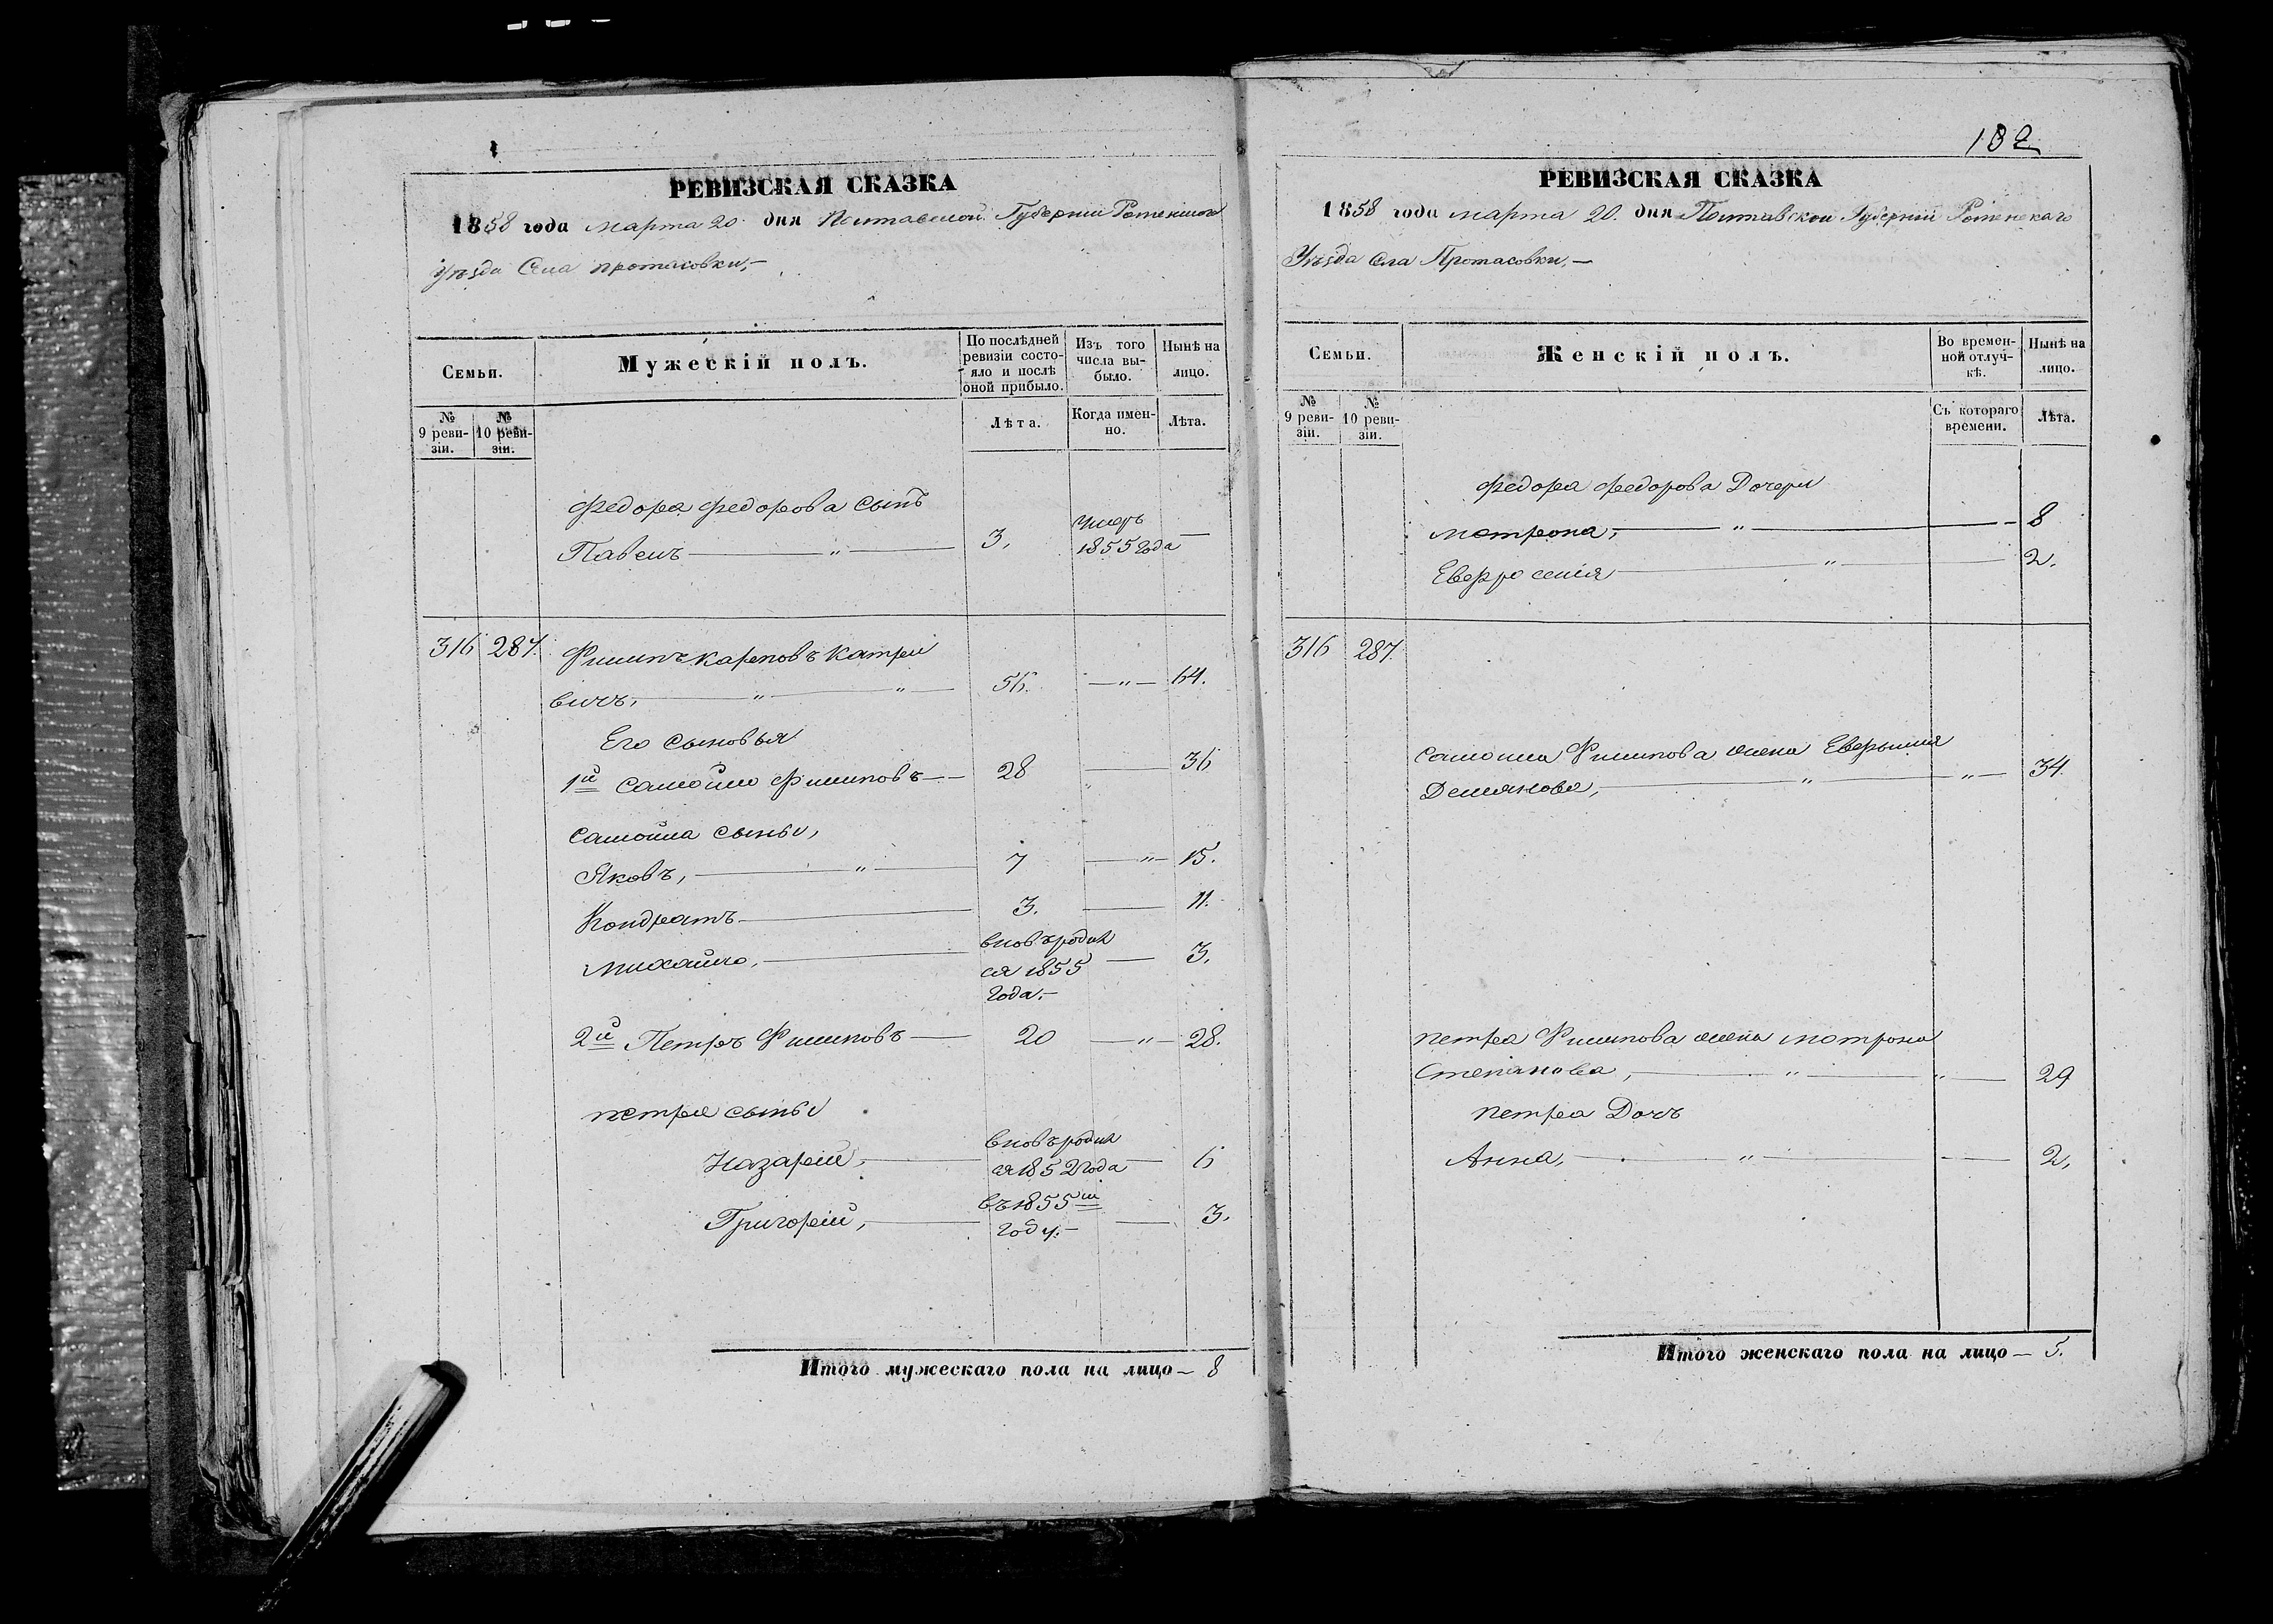 РЕВИЗСКАЯ СКАЗКА
1858 года марта 20 дня Полтавской Губернии Роменскаго
Уѣзда Села Протасовки,—
Семьи.
№ 9 ревизіи.
№ 10 ревизіи.
Мужескій полъ.
По послѣдней
ревизіи состо-
яло и послѣ
оной прибыло.
Лѣта.
Изъ того
числа вы-
было.
Когда имен-
но.
Нынѣ на
лицо.
Лѣта.
Федора Федорова сынъ
Павелъ — " — 3, умеръ 1855 года —
316 287. Филипъ Карповъ Катре
вичъ, — " — " — 56. — " — 64.
Его сыновья
1й Самойло Филиповъ — 28 — 36
Самойла сыны,
Яковъ, — " — 7 — " — 15.
Кондратъ — 3. — 11.
Михайло, — вновь родил
ся 1855
года. — — 3.
2й Петръ Филиповъ — 20 — " — 28.
Петра сыны
Назарій, — вновь родил
ся 1852 года — 6
Григорій, — въ 1855 м
году. — — 3.
Итого мужескаго пола на лицо — 8
182
РЕВИЗСКАЯ СКАЗКА
1858 года марта 20. дня Полтавской Губерніи Роменскаго
Уѣзда Села Протасовки, —
Семьи.
№ 9 ревизіи.
№ 10 ревизіи.
Женскій полъ.
Во времен-
ной отлуч-
кѣ.
Съ котораго
времени.
Нынѣ на
лицо.
Лѣта.
Федора Федорова Дочери
Матрона, — " — 8
Евфросенія — " — 2.
316 287.
Самойла Филипова жена
Демянова, — " — " — 34.
Петра Филипова жена Матрона
Степанова, — " — " — 29
Петра Дочь
Анна, — " — 2,
Итого женскаго пола на лицо — 5.